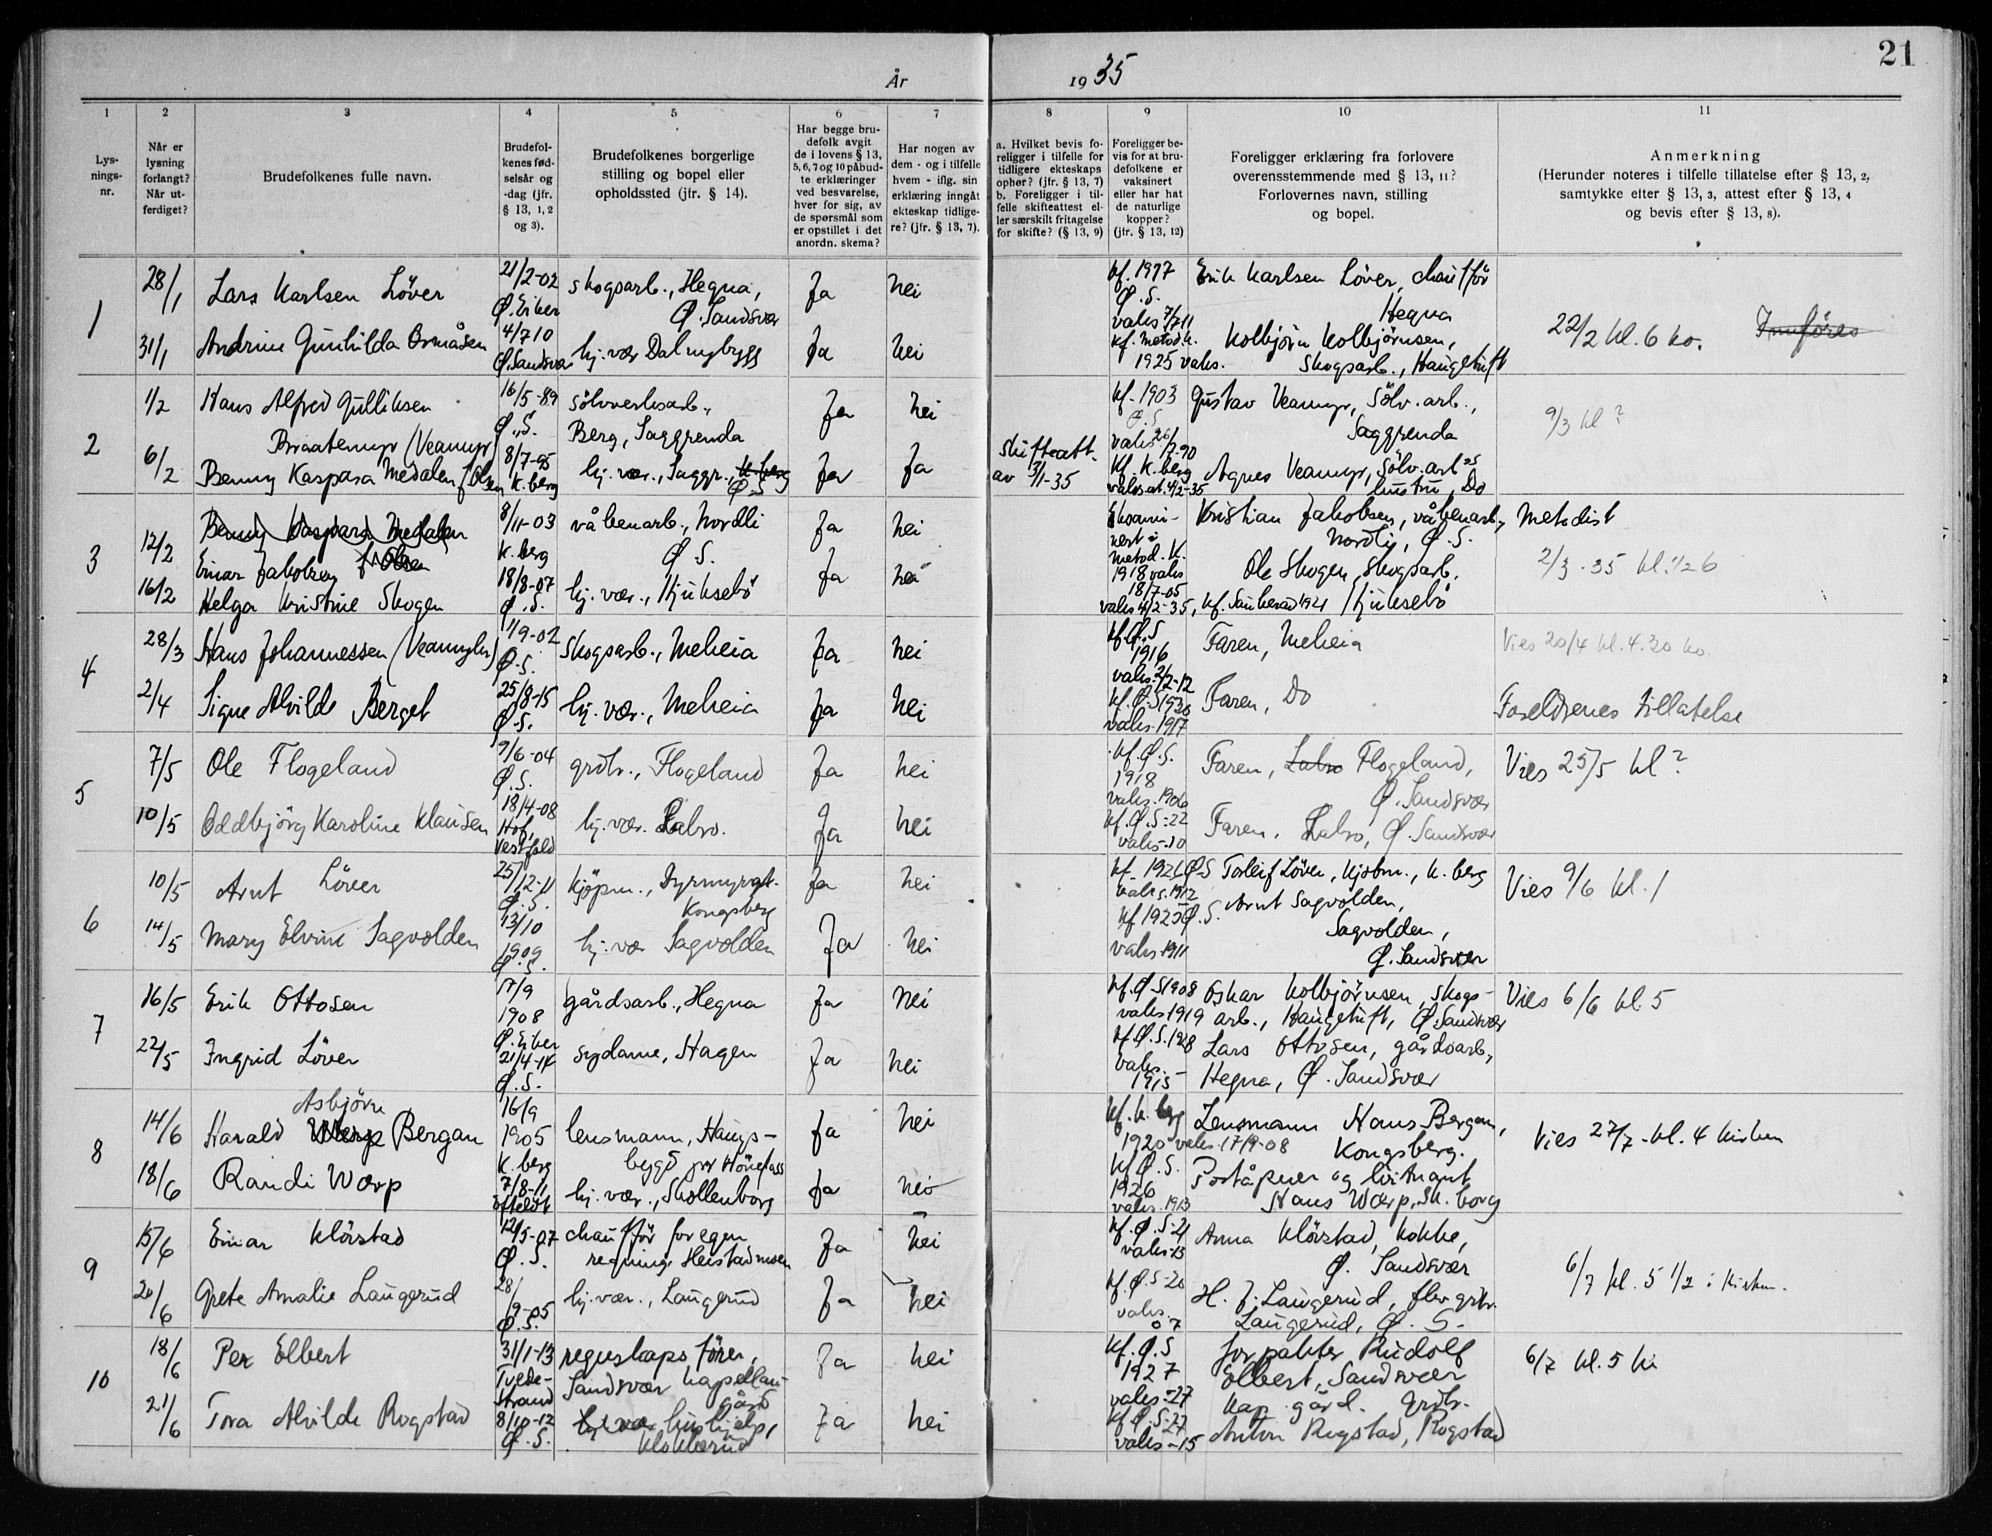 År
1935
21
1
2
3
4
5
6
7
8
9
10
11
Lys-
nings-
nr.
Når er
lysning
forlangt?
Når ut-
ferdiget?
Brudefolkenes fulle navn.
Brudefol-
kenes fød-
selsår og
-dag (jfr.
§ 13, 1, 2
og 3).
Brudefolkenes borgerlige
stilling og bopel eller
opholdssted (jfr. § 14).
Har begge bru-
defolk avgit
de i lovens § 13,
5, 6, 7 og 10 påbud-
te erklæringer
ved besvarelse,
hver for sig, av
de spørsmål som
er opstillet i det
anordn. skema?
Har nogen av
dem - og i tilfelle
hvem - iflg. sin
erklæring inngåt
ekteskap tidlige-
re? (jfr. § 13, 7).
a. Hvilket bevis fo-
religger i tilfelle for
tidligere ekteskaps
ophør? (jfr. § 13, 7)
b. Foreligger i til-
felle skifteattest el-
ler særskilt fritagelse
for skifte? (§ 13, 9)
Foreligger be-
vis for at bru-
defolkene er
vaksinert
eller har hat
de naturlige
kopper?
(jfr. § 13, 12)
Foreligger erklæring fra forlovere
overensstemmende med § 13, 11?
Forlovernes navn, stilling
og bopel.
Anmerkning
(Herunder noteres i tilfelle tillatelse efter § 13, 2,
samtykke efter § 13, 3, attest efter § 13, 4
og bevis efter § 13, 8).
1
28/1
Lars Karlsen Löver
21/2-02
Ø. Eiker
skogsarb., Hegna,
Ø. Sandsvær
Ja
nei
kf. 1917
Ø.S.
vaks 7/7 11
Erik Karlsen Löver, chaufför
Hegna
22/2 kl. 6 ko.
Innføres
31/1
Andrine Gunhilda Ormåsen
4/7 10
Ø. Sandsvær
hj. vær Dalmybygg
Ja
nei
kf. metod.k.
1925 vaks.
Kolbjörn Kolbjörnsen,
Skogsarb., Haugetuft
2
1/2
Hans Alfred Gulliksen
Braatemyr (Veamyr)
16/5-89
Ø.S.
sölvverksarb.,
Berg, Saggrenda
Ja
nei
kf. 1903
Ø.S.
vaks 20/7-90
Gustav Veamyr, Sölv.arb.,
Saggrenda
9/3 kl ?
6/2
Benny Kaspara Medalen f. Olsen
8/7-95
K.berg
hj. vær., Saggr., K.berg
Ø.S
Ja
Ja
Skifteatt.
av 3/1-35
kf. K.berg
vaks.at. 4/2-35
Agnes Veamyr, Sölv.arb's
hustru, Do
3
12/2
Benny Kaspara Medalen
f. Olsen
Einar Jakobsen
8/11-03
K.berg
våbenarb., Nordli
Ø. S.
Ja
nei
Eksami-
nert i
metod. K.
1918 vaks
18/7-05
Kristian Jakobsen, våbenarb.,
Nordli, Ø. S.
Metodist
2/3.35 kl. 1/2 6
16/2
Helga Kristine Skogen
18/8-07
Ø. S.
hj. vær., Hjuksebö
Ja
nei
vaks 4/2-35, kf. Sauherad 1921
Ole Skogen, Skogsarb.
Hjuksebö
4
28/3
Hans Johannessen (Veamyhr)
1/9-02
Ø.S.
Skogsarb., Meheia
Ja
nei
kf. Ø.S
1916
vaks. 2/2-12
Faren, Meheia
Vies 20/4 kl. 4.30 ko.
2/4
Signe Alvilde Berget
25/8-15
Ø.S.
hj. vær., Meheia
Ja
nei
kf. Ø.S 1930
vaks. 1917
Faren, Do
Foreldrenes tillatelse
5
7/5
Ole Flogeland
9/6-04
Ø.S.
grdbr., Flogeland
Ja
nei
kf. Ø.S.
1918
vaks. 1906
Faren, Labro Flogeland,
Ø. Sandsvær
Vies 25/5 kl ?
10/5
Oddbjörg Karoline Klausen
18/4-08
Hof,
Vestfold
hj. vær. Labro.
Ja
nei
kf. Ø.S-22
vaks-10
Faren, Labro, Ø. Sandsvær
6
10/5
Arnt Löver
25/12-11
Ø. S.
kjöpm., Dyrmyrgt.
Kongsberg
Ja
nei
kf. 1926 Ø.S
vaks. 1912
Torleif Löver, Kjöbm., K. berg
Vies 9/6 kl. 1
14/5
Mary Elvine Sagvolden
13/10
1909
Ø. S.
hj. vær Sagvolden
Ja
nei
kf 1925 Ø.S.
vaks 1911
Arnt Sagvolden,
Sagvolden,
Ø. Sandsvær
7
16/5
Erik Ottosen
17/9
1908
Ø. Eiker
gårdsarb., Hegna
Ja
nei
kf. Ø S 1908
vaks 1919
Oskar Kolbjörnsen, Skogs-
arb., Haugetuft, Ø. Sandsvær
Vies 6/6 kl. 5
22/5
Ingrid Löver
21/4-14
Ø. S.
sydame, Hagen
Ja
nei
kf. Ø. S. 1928
vaks.
1915
Lars Ottosen, gårdsarb.,
Hegna, Ø. Sandsvær
8
14/6
Asbjörn
Harald Bergan
16/9
1905
K.berg
lensmann, Haugs-
bygd pr Hönefoss
Ja
nei
kf. K. berg
1920 vaks. 17/9-08
Lensmann Hans Bergan,
Kongsberg.
Vies 27/7 - kl. 4 kirken
18/6
Randi Wærp
7/8-11
hj. vær., Skollenborg
Ja
nei
kf Ø.S.
1926
vaks. 1913
Poståpner og löitnant
Hans Wærp, Sk. borg
9
15/6
Einar Klörstad
12/5-07
Ø. S.
chaufför for egen
regning, Heistadmoen
Ja
nei
kf. Ø. S-21
vaks-13
Anna Klörstad, Kokke,
Ø. Sandsvær
6/7 kl. 5 1/2 i kirken.
20/6
Grete Amalie Laugerud
28/
9-05
Ø.S.
hj. vær., Laugerud
Ja
nei
kf. Ø.S-20
vaks.
07
H. J. Laugerud, flev grbr.
Laugerud, Ø. S.
10
18/6
Per Elbert
31/1-13
Tvede-
strand
regnskapsförer,
Sandsvær kapellan-
gård
Ja
nei
kf. Ø.S
1927
vaks-27
forpakter Rudolf
Elbert, Sandsvær
kap. gård.
6/7 kl. 5 ki
21/6
Tora Alvilde Rogstad
8/10-12
Ø.S.
hj. vær hushjelp,
Klokkerud
Ja
nei
kf. Ø.S-27
vaks-15
Grdbr.
Anton Rogstad, Rogstad